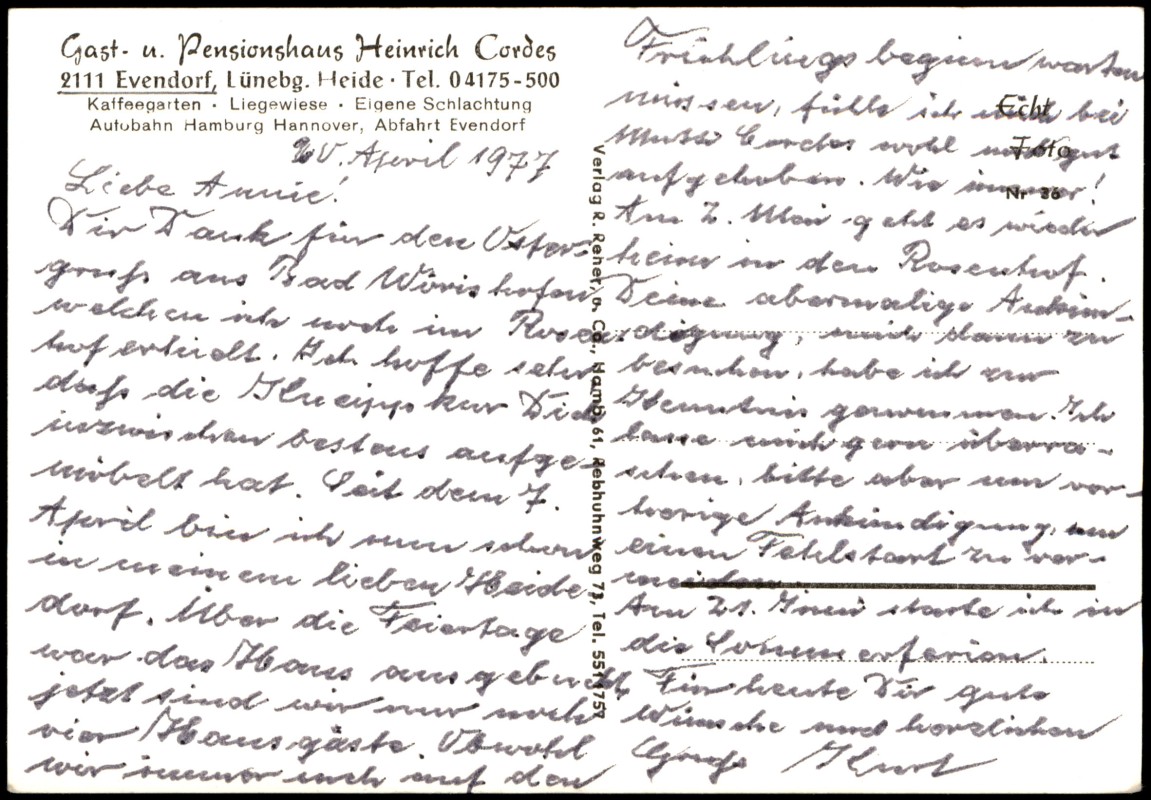 Gast- u. Pensionshaus Heinrich Cordes
2111 Evendorf, Lünebg. Heide · Tel. 04175-500
Kaffeegarten · Liegewiese · Eigene Schlachtung
Autobahn Hamburg Hannover, Abfahrt Evendorf
20. April 1977
Liebe Annie!
Dir Dank für den Oster-
gruß aus Bad Wörishofen
welchen ich noch im Rosen-
hof erhielt. Ich hoffe sehr
daß die Kneippkur Dich
inzwischen bestens aufge-
möbelt hat. Seit dem 7.
April bin ich nun schon
in meinem lieben Heide-
dorf. Über die Feiertage
war das Haus ausgebucht,
jetzt sind wir nur noch
vier Hausgäste. Obwohl
wir immer noch auf den
Verlag R. Reher, u. Co., Hamb. 61, Rebhuhnweg 73, Tel. 5511757
Echt
Foto
Nr 36
Frühlingsbeginn warten
müssen, fühle ich mich bei
Mutti Cordes wohl und gut
aufgehoben. Wie immer!
Am 2. Mai geht es wieder
heim in den Rosenhof.
Deine abermalige Ankün-
digung, mich dann zu
besuchen, habe ich zur
Kenntnis genommen. Ich
lasse mich gern überra-
schen, bitte aber um vor-
herige Ankündigung, um
einen Fehlstart zu ver-
meiden.
Am 21. Juni starte ich in
die Sommerferien.
Für heute Dir gute
Wünsche und herzlichen
Gruß Kurt